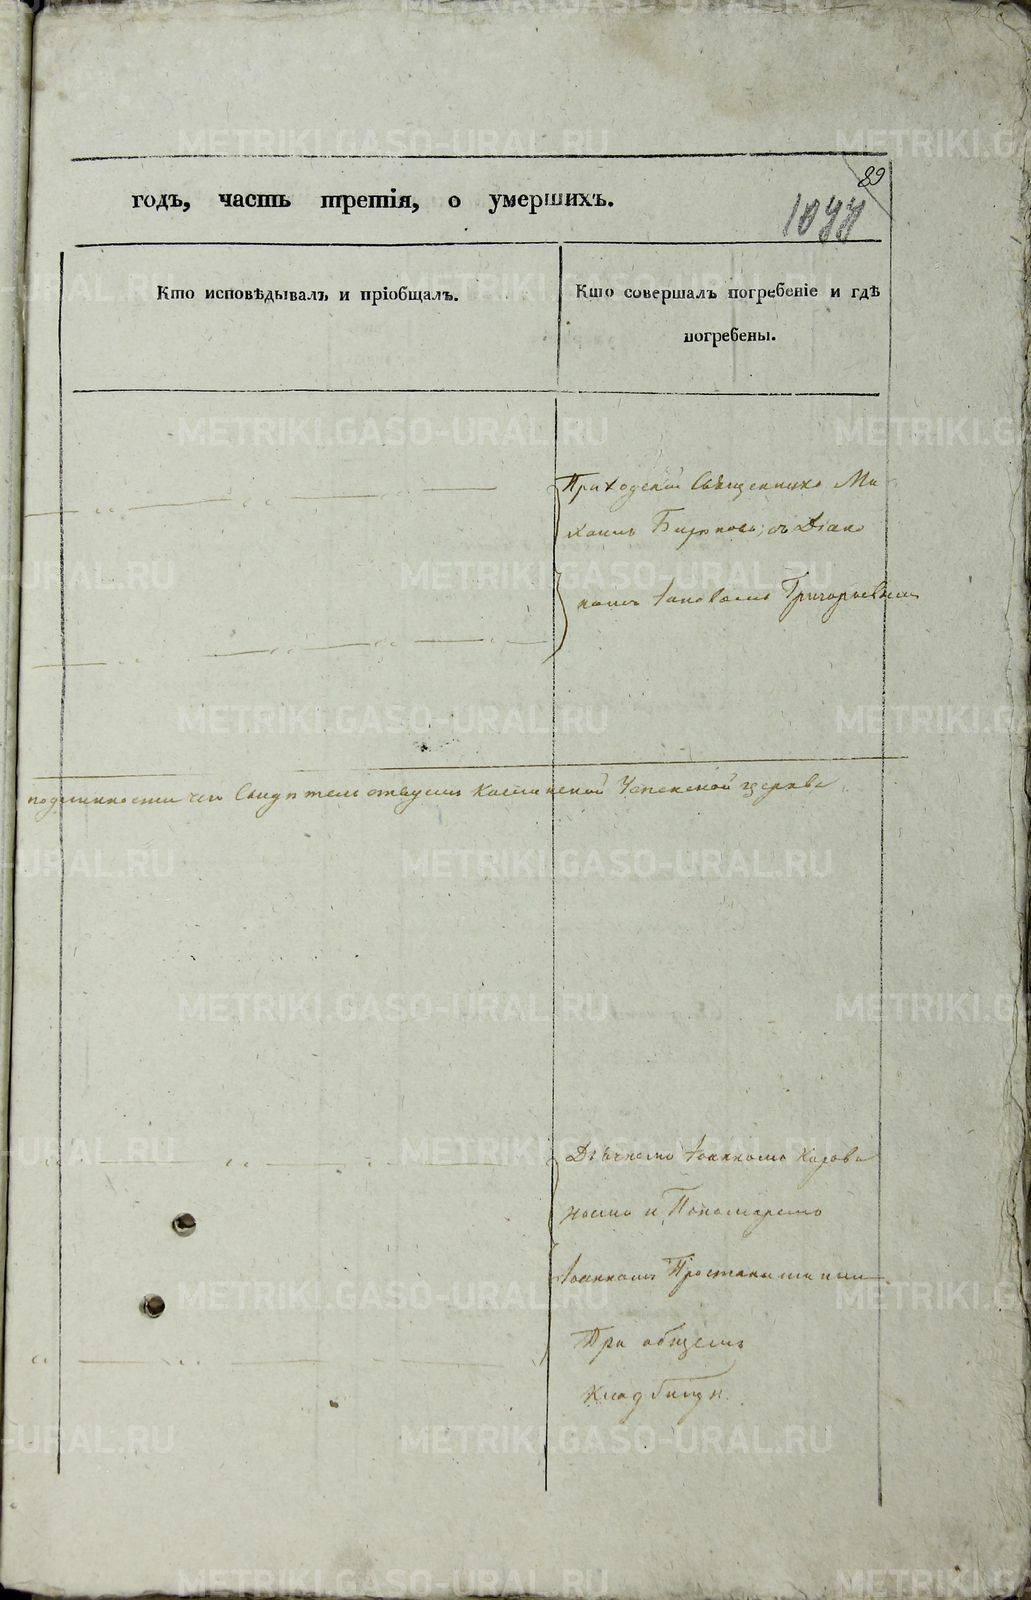 89
годъ, часть третія, о умершихъ.
1077
Кто исповѣдывалъ и пріобщалъ.
Кто совершалъ погребеніе и гдѣ
погребены.
Приходскій Священникъ Ми
хаилъ Бирюковъ, съ Діако
номъ Іаковомъ Григорьевымъ
подлинности чего Свидѣтельствуемъ Каслинской Успенской церкви
Дьячкомъ Іоанномъ
и Пономаремъ
Іоанномъ
При общемъ
Кладбищѣ.
METRIKI.GASO-URAL.RU